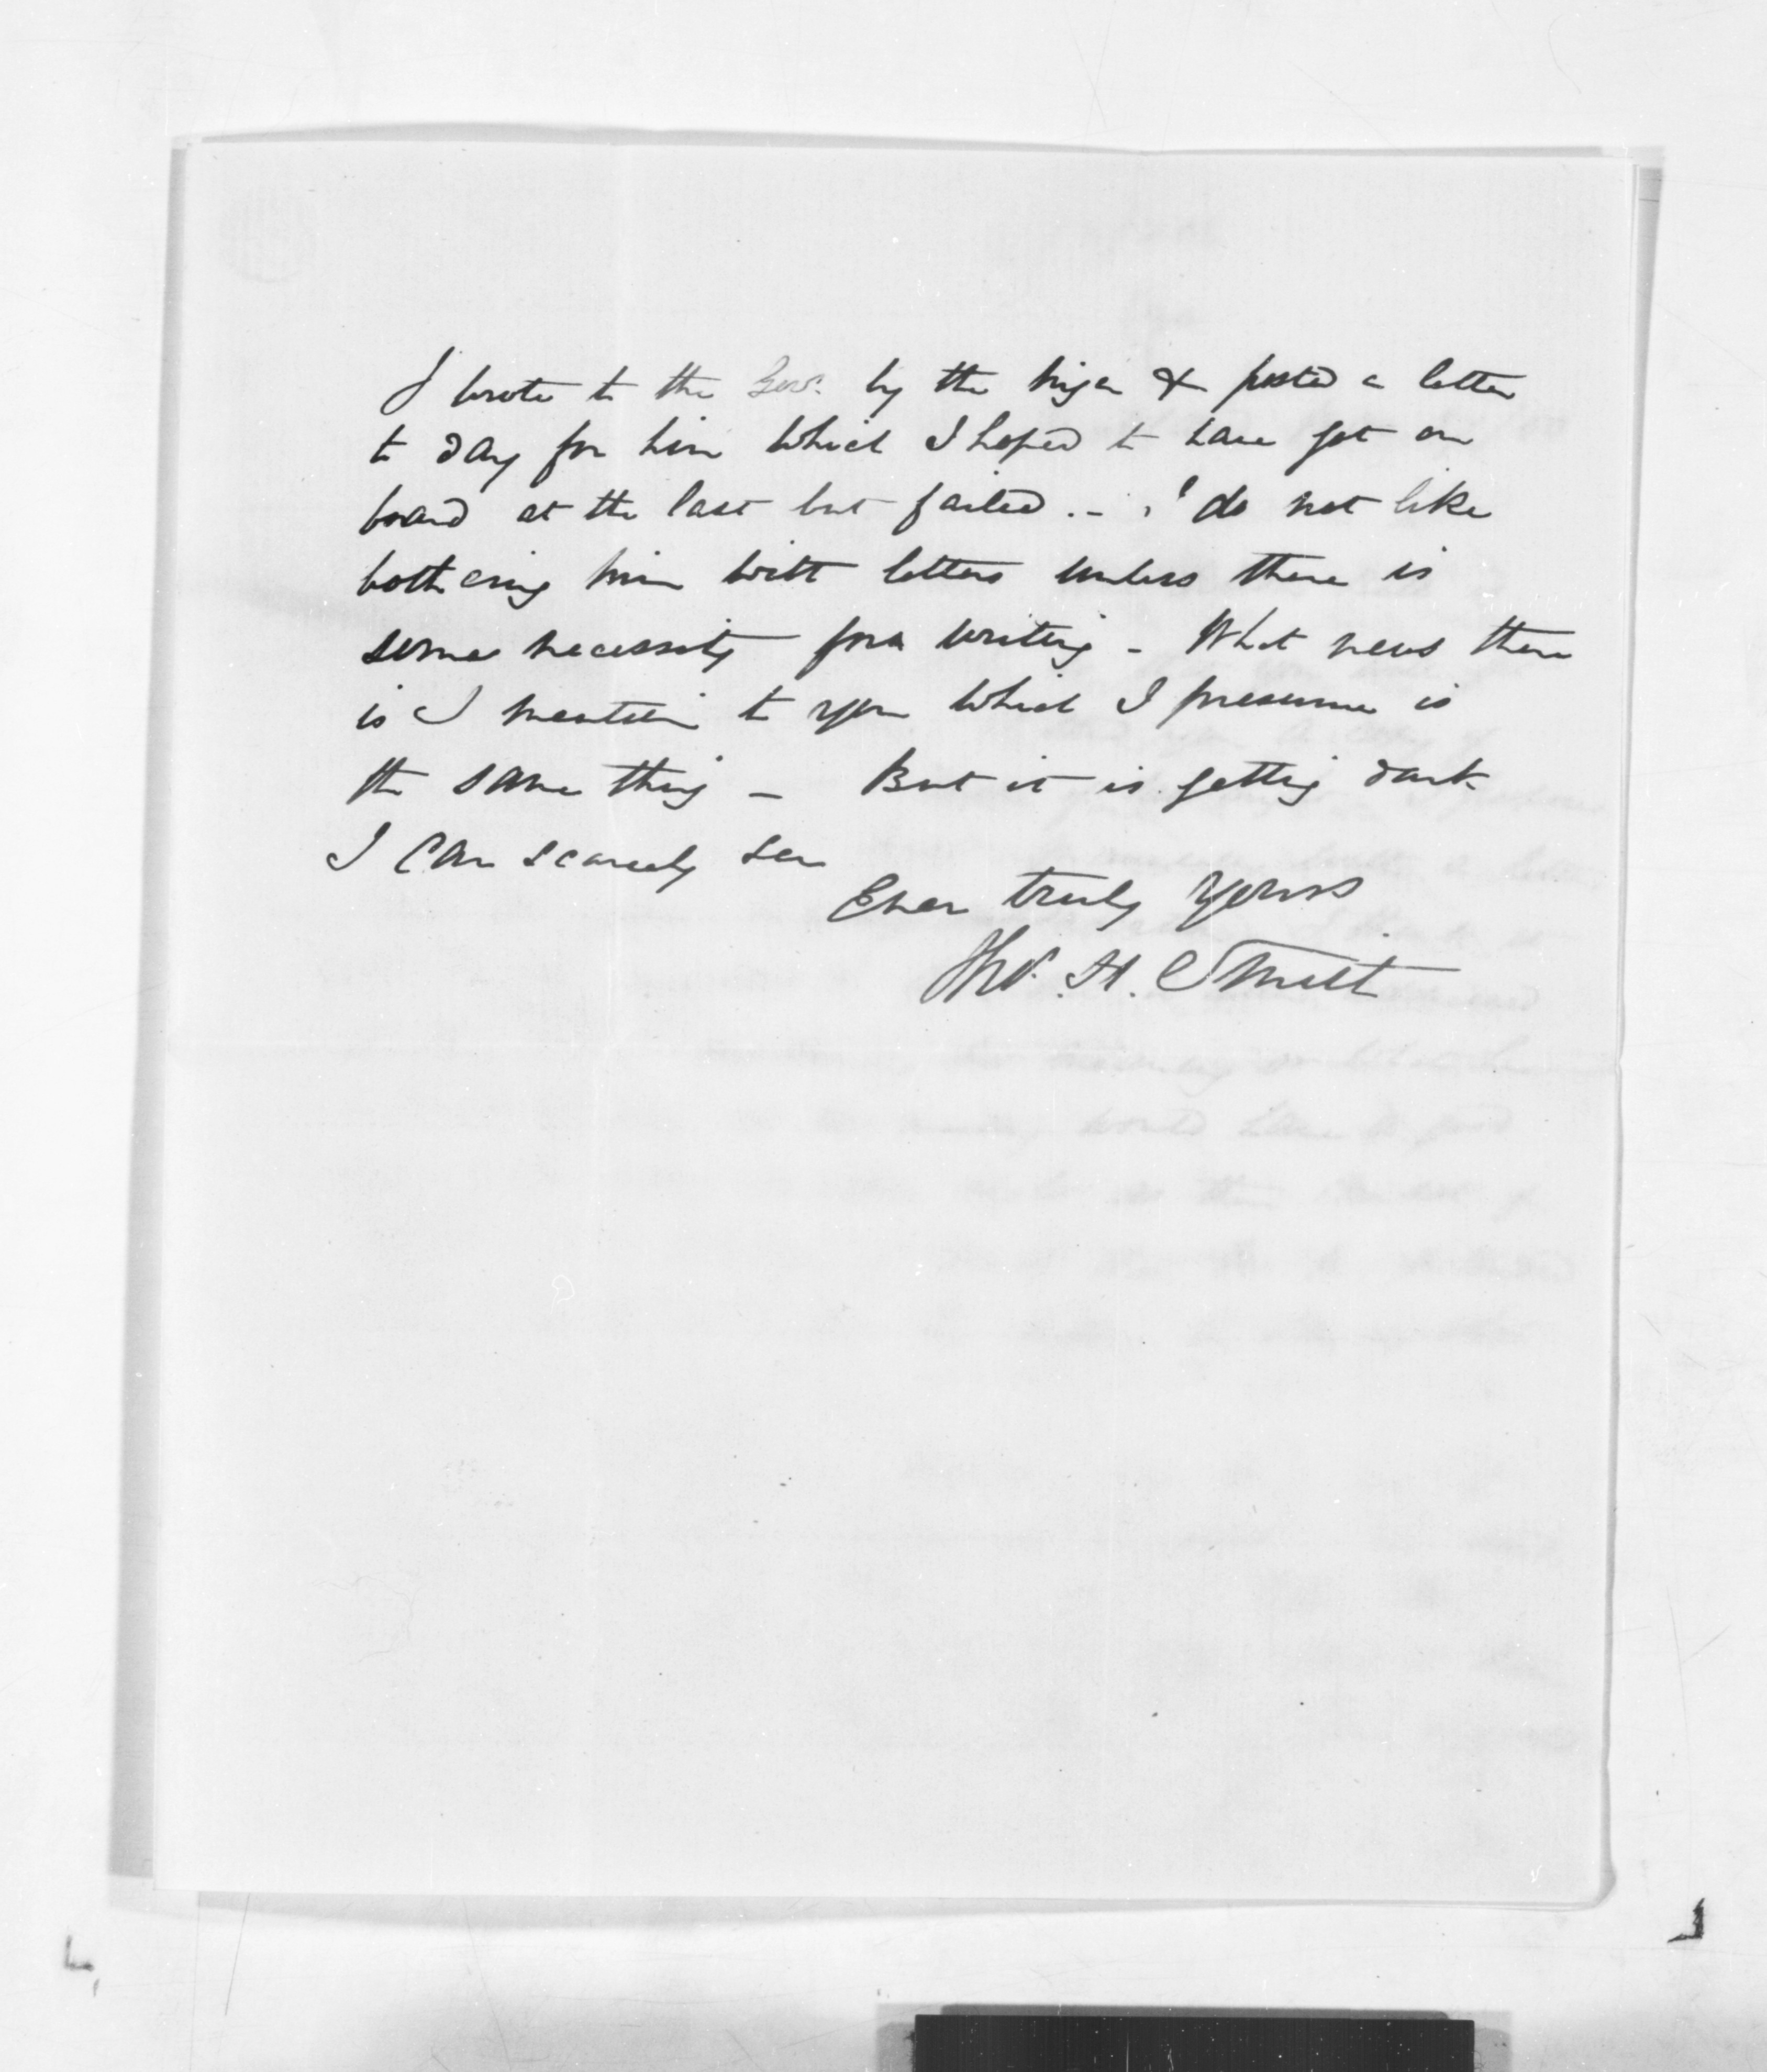 I wrote to the Gov. by the Niger & posted a letter
to day for him which I hoped to have got on
board at the last but failed. - I do not like
bothering him with letters unless there is
some necessity for writing - What news there
is I mention to you which I presume is
the same thing - But it is getting dark
I can scarcely see
Ever truly yours
Thos. H. Smith